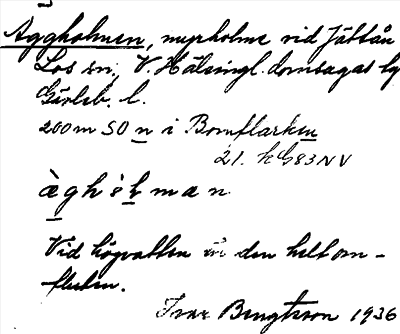 Äggholmen, myrholme vid Jättån
Los sn, V. Hälsingl. domsagas
Gävleb. l.
200 m SO n i Bomflarken
21. NV
Vid högvatten är den helt om-
fluten.
Ivar Bengtsson 1936